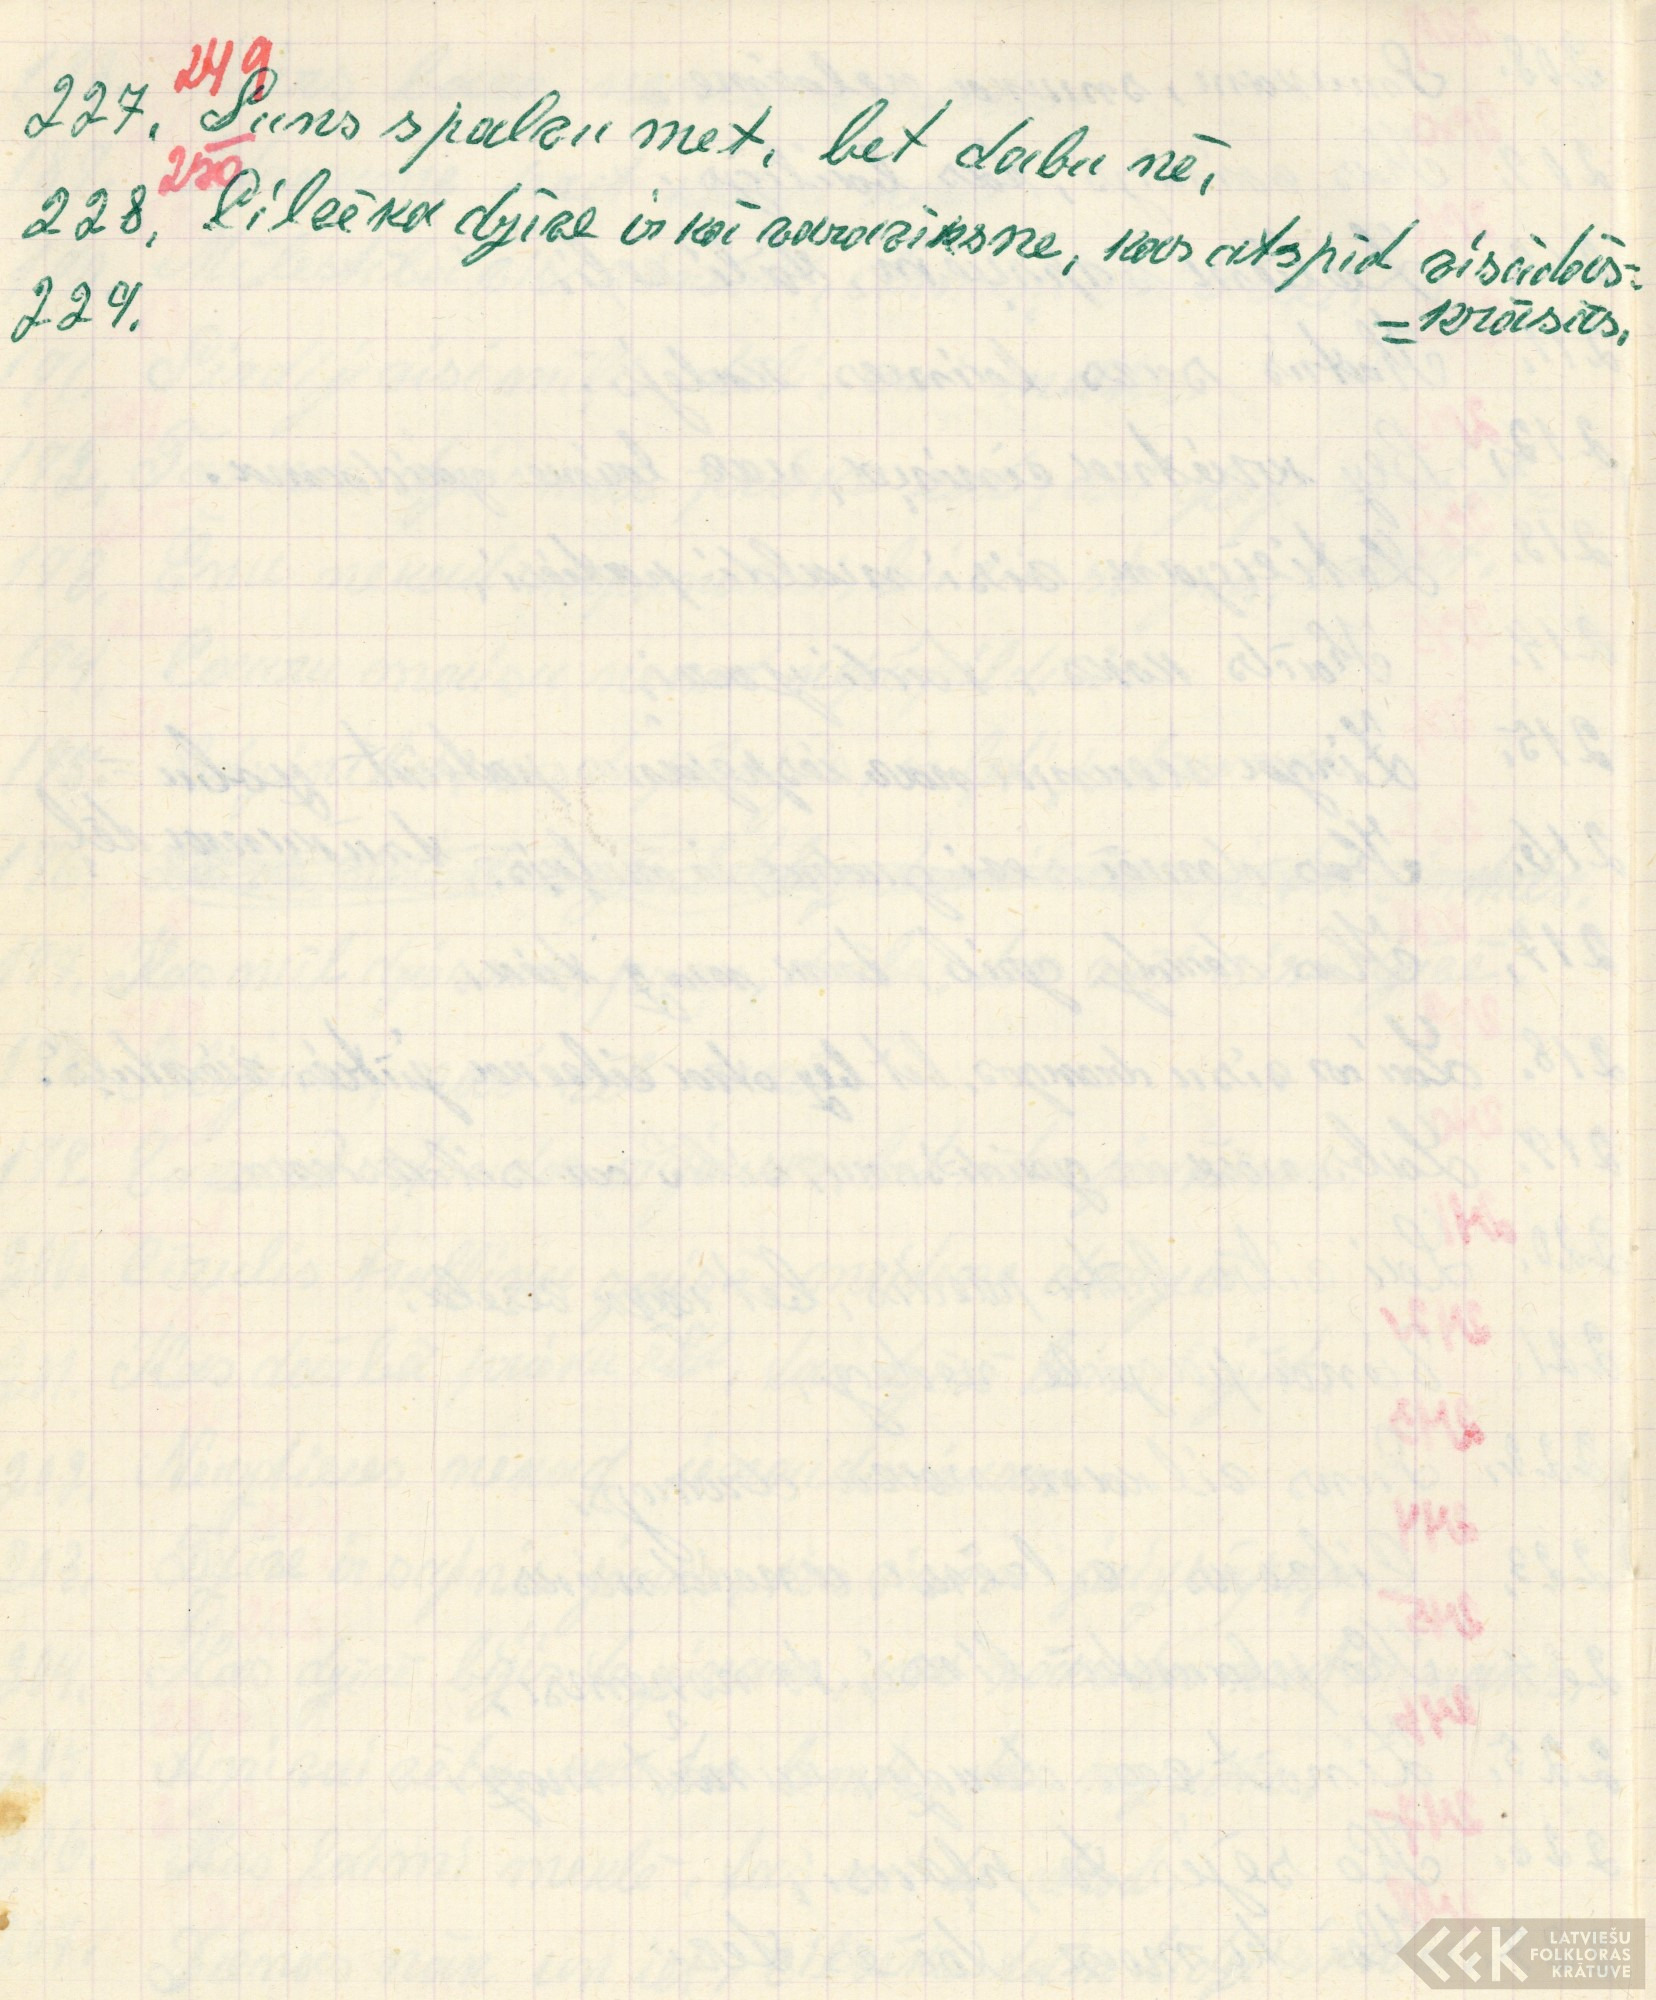 249
227. Suns spalvu met, bet dabu nē,
250
228. Cilvēka dzīve ir kā varavīksne, kas atspīd visādās=
229. =krāsās.
LATVIEŠU
FOLKLORAS
KRĀTUVE